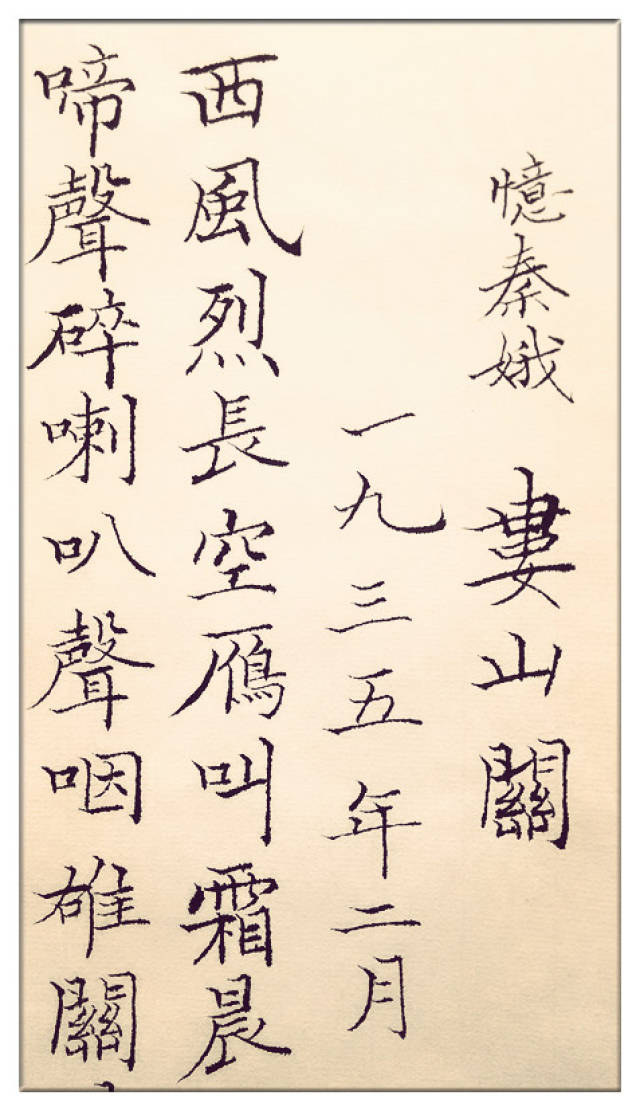 憶秦娥 婁山關
一九三五年二月
西風烈長空鴈叫霜晨
啼聲碎喇叭聲咽雄關